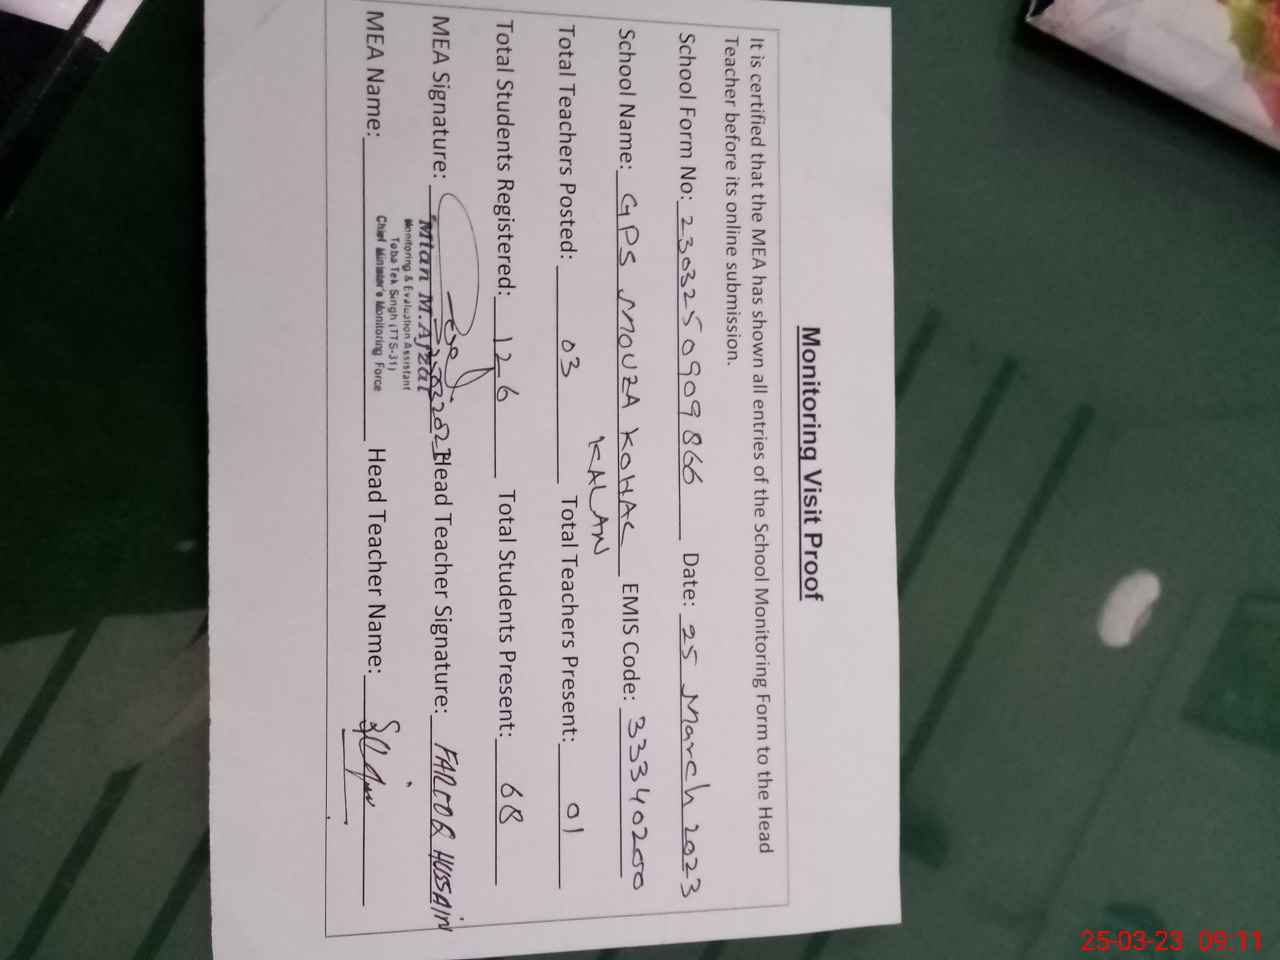 Monitoring Visit Proof
It is certified that the MEA has shown all entries of the School Monitoring Form to the Head
Teacher before its online submission.
School Form No: 2303250909866 Date: 25 March 2023
School Name: GPS MOUZA KOHAL EMIS Code: 33340200
KALAN
Total Teachers Posted: 03 Total Teachers Present: 01
Total Students Registered: 126 Total Students Present: 68
MEA Signature: Head Teacher Signature: FAROOQ HUSSAIN
Mian M. Afzal
Monitoring & Evaluation Assistant
Toba Tek Singh (TTS-31)
Chief Minister's Monitoring Force
MEA Name: Head Teacher Name:
25-03-23 09:11